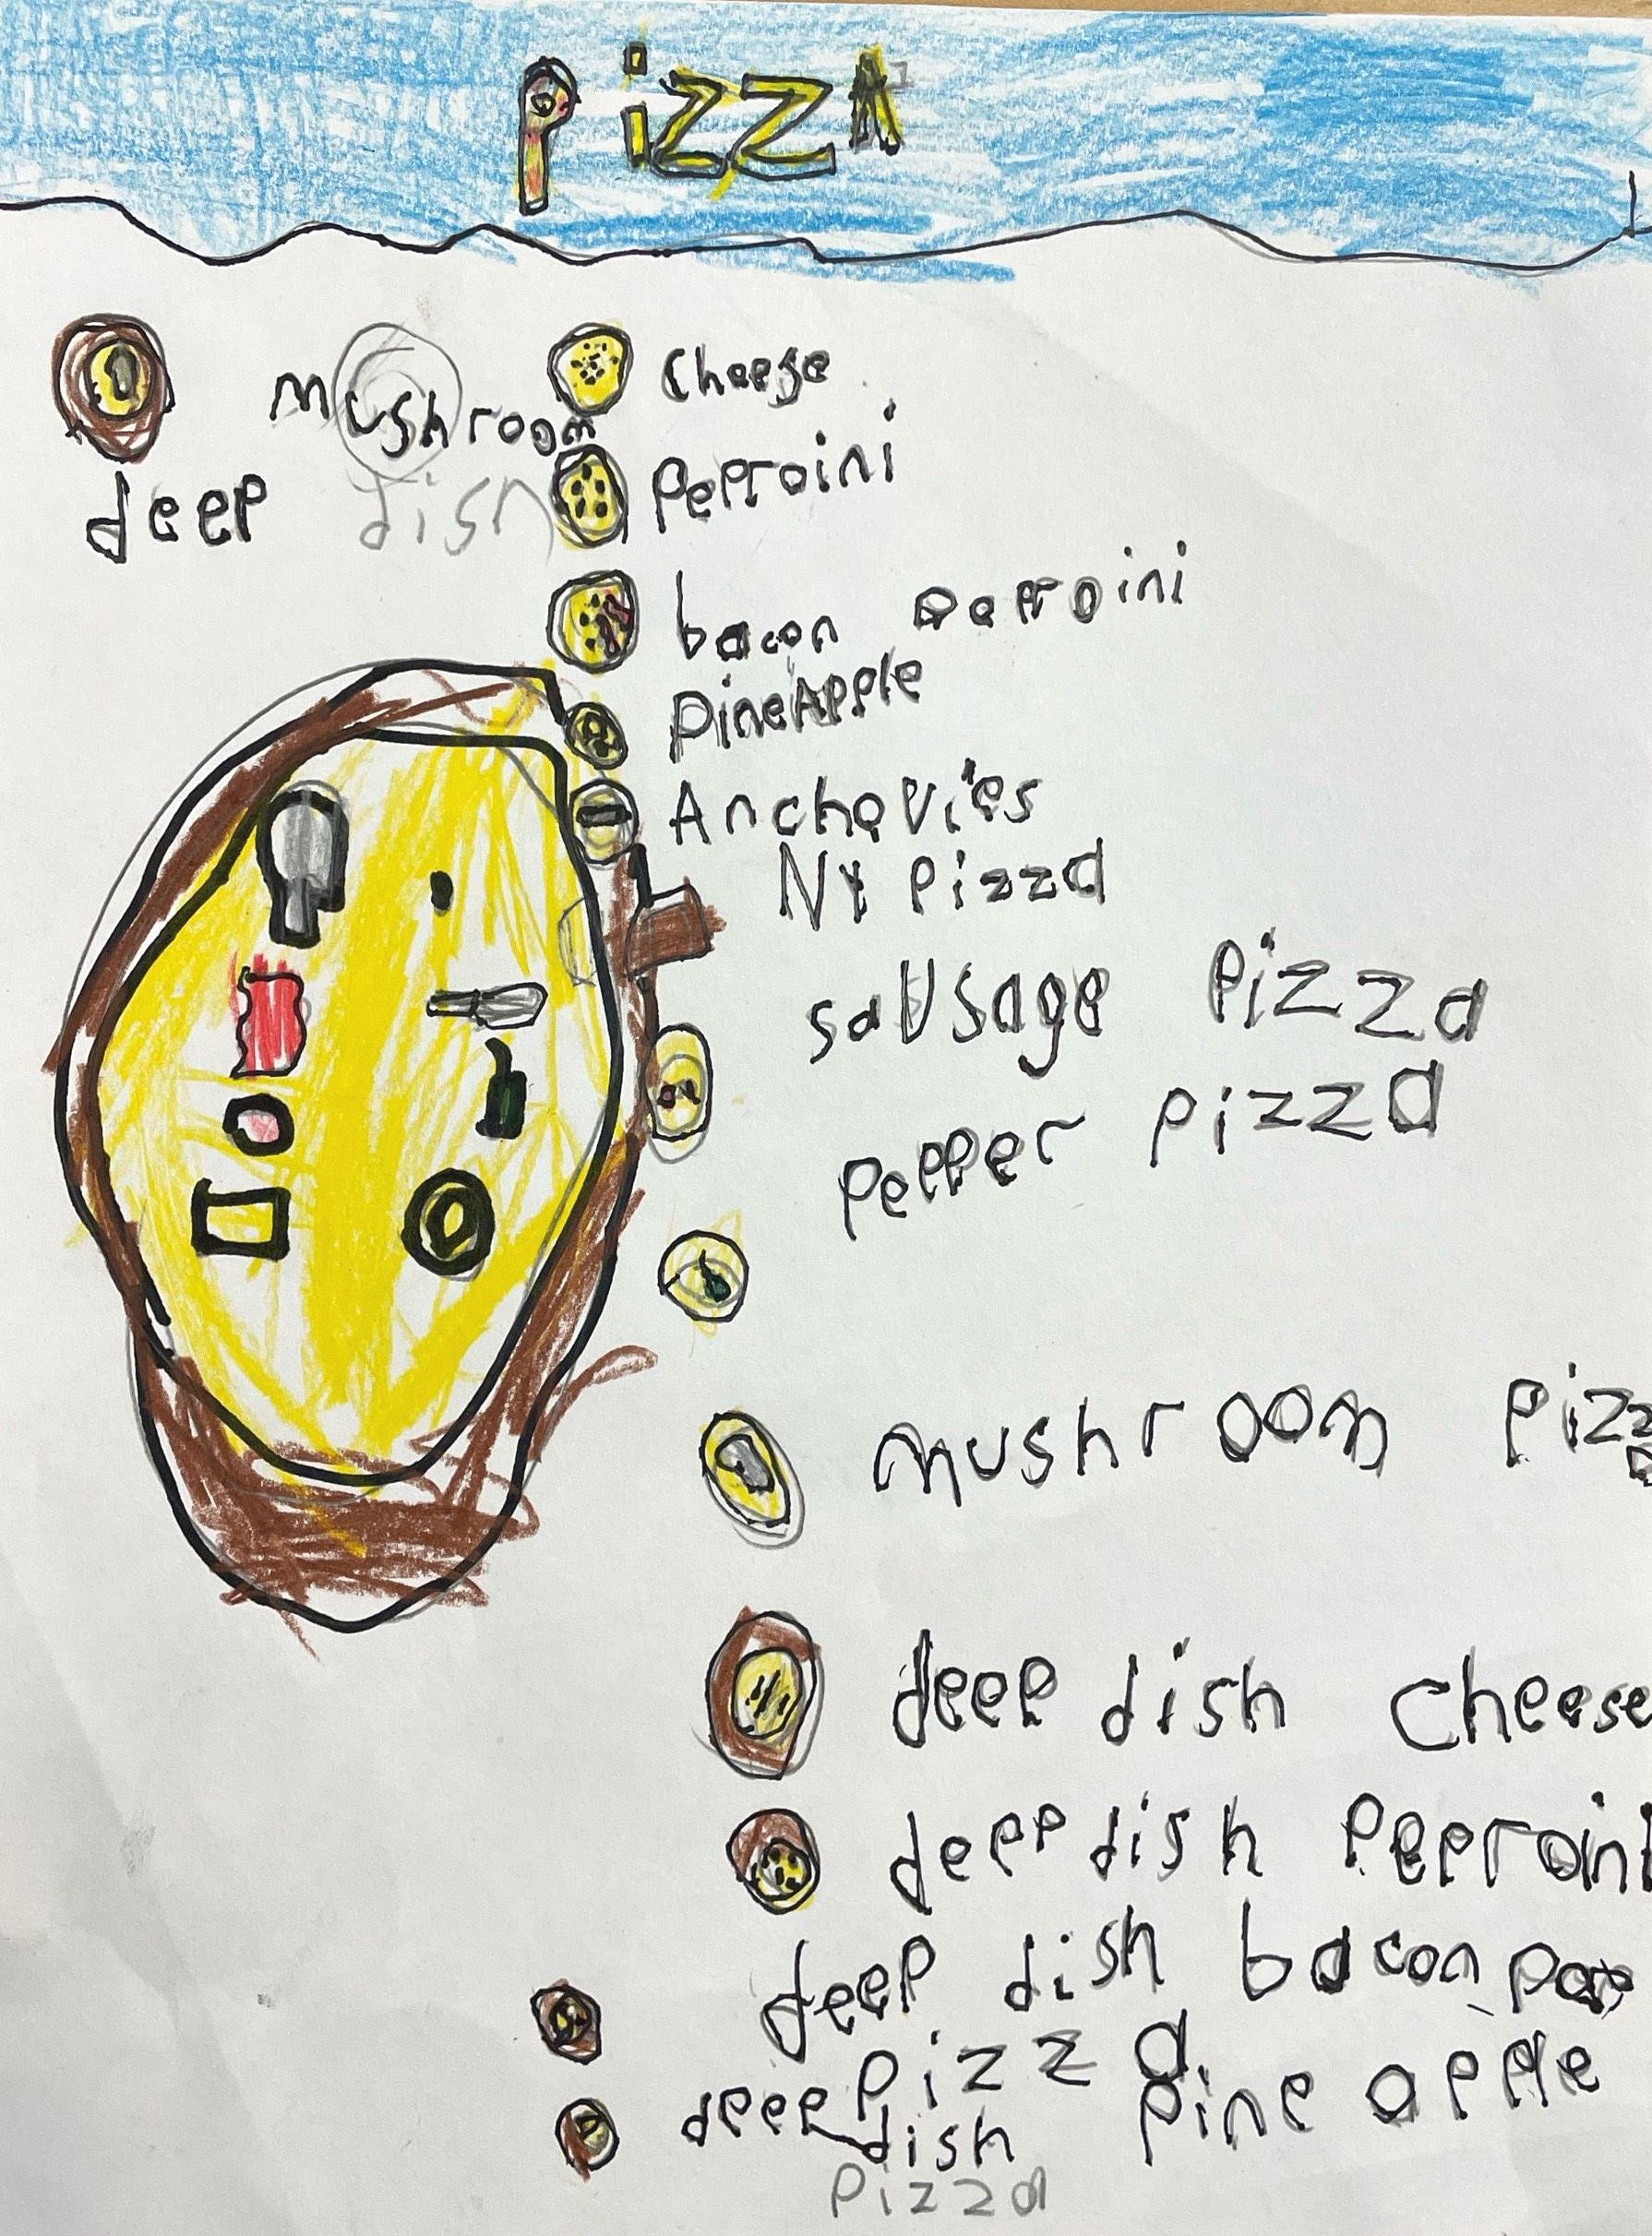 pizzA
mushroom
deep dish
Cheese
Pepproini
bacon pepproini
pineApple
Anchovies
NY Pizza
sausage Pizza
pepper pizza
mushroom pizz
deep dish cheese
deep dish pepproini
deep dish bacon
pizza
deep dish pine apple
pizza